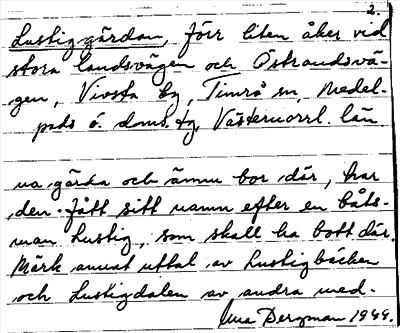 2.
Lustiggärdan, förr liten åker vid
stora landsvägen och Östrandsvä-
gen, Vivsta by, Timrå sn, Medel-
pads ö. doms. tg, Västernorrl. län
na gärda och ännu bor där, har
den fått sitt namn efter en båts-
man Lustig, som skall ha bott där.
Märk annat uttal av Lustigbäcken
och Lustigdalen av andra med-
Bergman 1944.